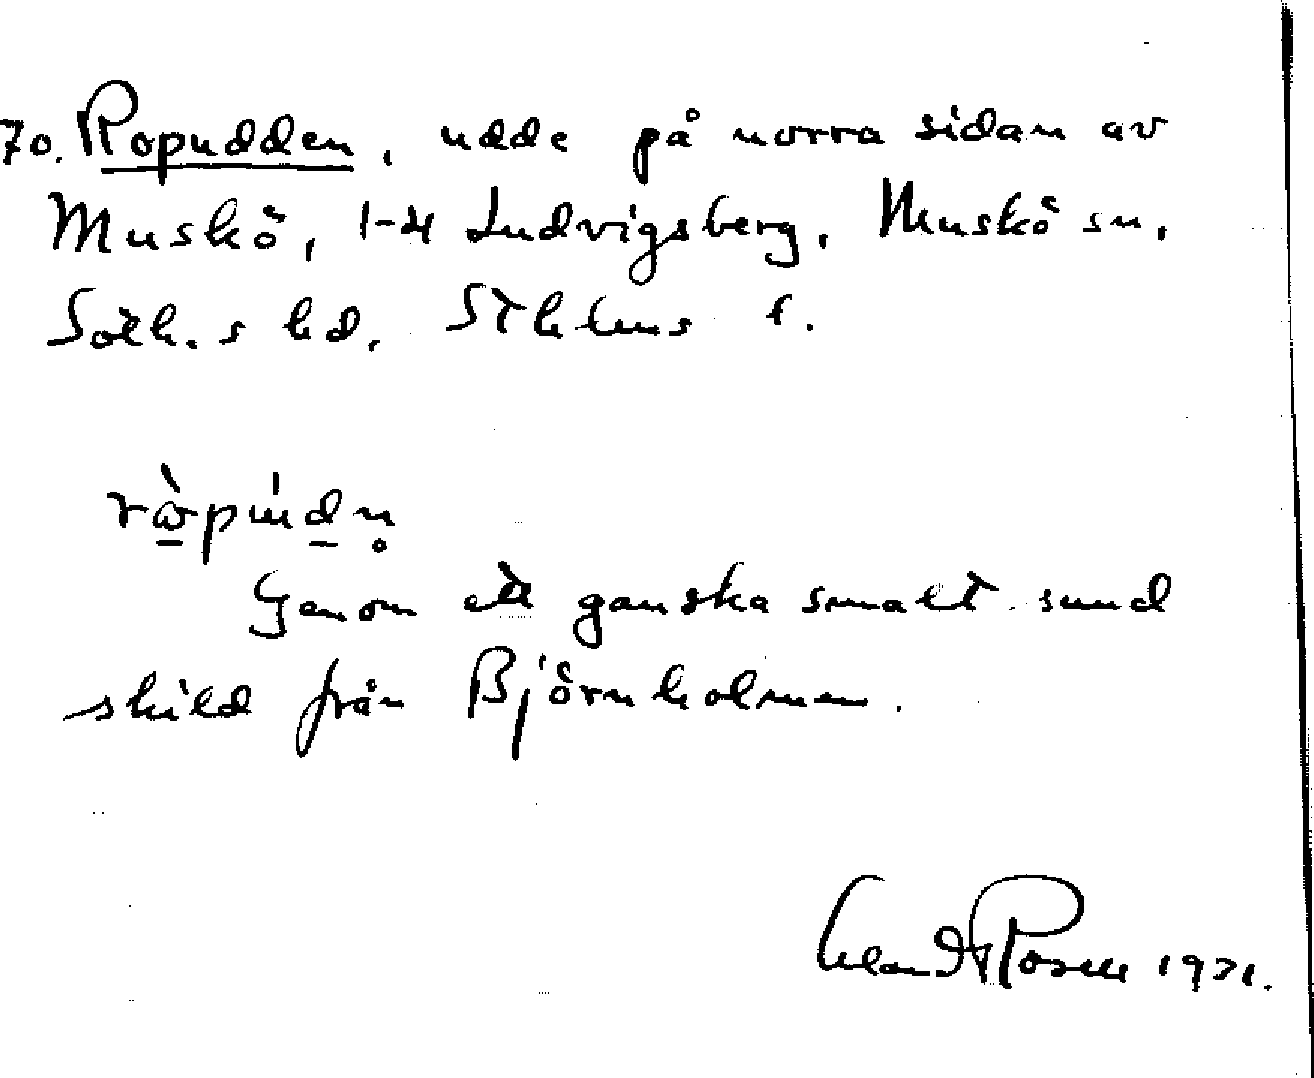 70. Ropudden, udde på norra sidan av
Muskö, 1-4 Ludvigsberg, Muskö sn,
Soth.s hd, Sthlms l.
Genom ett ganska smalt sund
skild från Björnholmen.
1971.